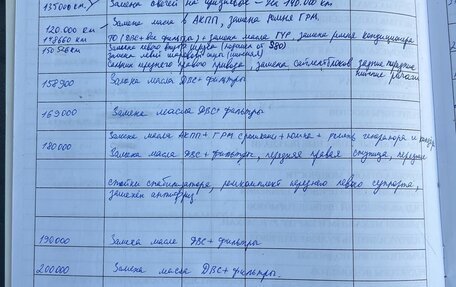 135000 км. Замена свечей на 140.000 км
120.000 км Замена масла в АКПП, замена ремня ГРМ.
148660 км ТО (ДВС + все фильтры) + замена масла ГУР, замена ремня кондиционера
150 526 км Замена левого внутр шруса
Замена левый шаровый
Сальник переднего правого привода, замена сайлентблоков задние передние
нижние рычаги
158900 Замена масла ДВС + фильтры
169000 Замена масла ДВС + фильтры
Замена масла АКПП + ГРМ с роликами + помпа + ремень генератора и
180000 Замена масла ДВС + фильтры, передняя правая ступица, передние
стойки стабилизатора, ремкомплект переднего левого суппорта,
заменен антифриз
190000 Замена масла ДВС + фильтры
200000 Замена масла ДВС + фильтры.